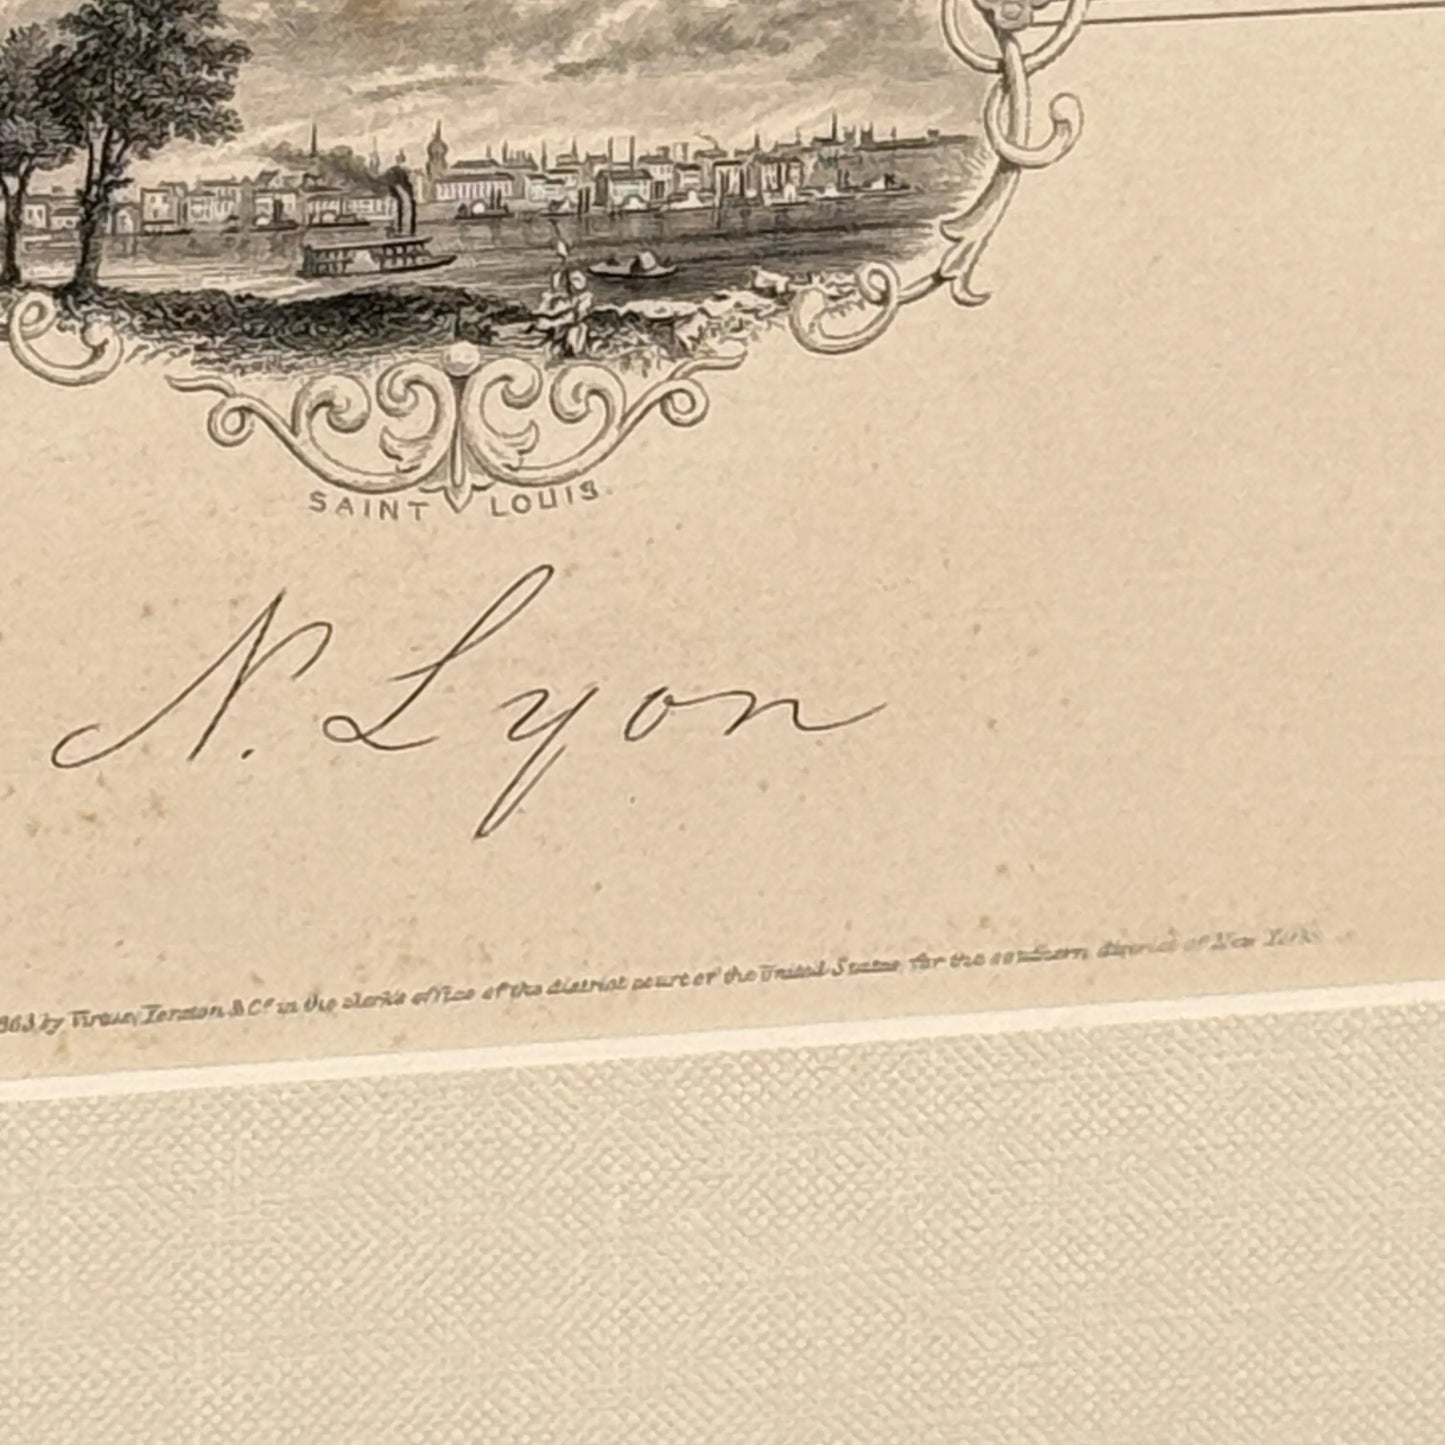 SAINT LOUIS.
N. Lyon
863 by Virtue, Yorston & Co. in the clerk's office of the district court of the United States for the southern district of New York